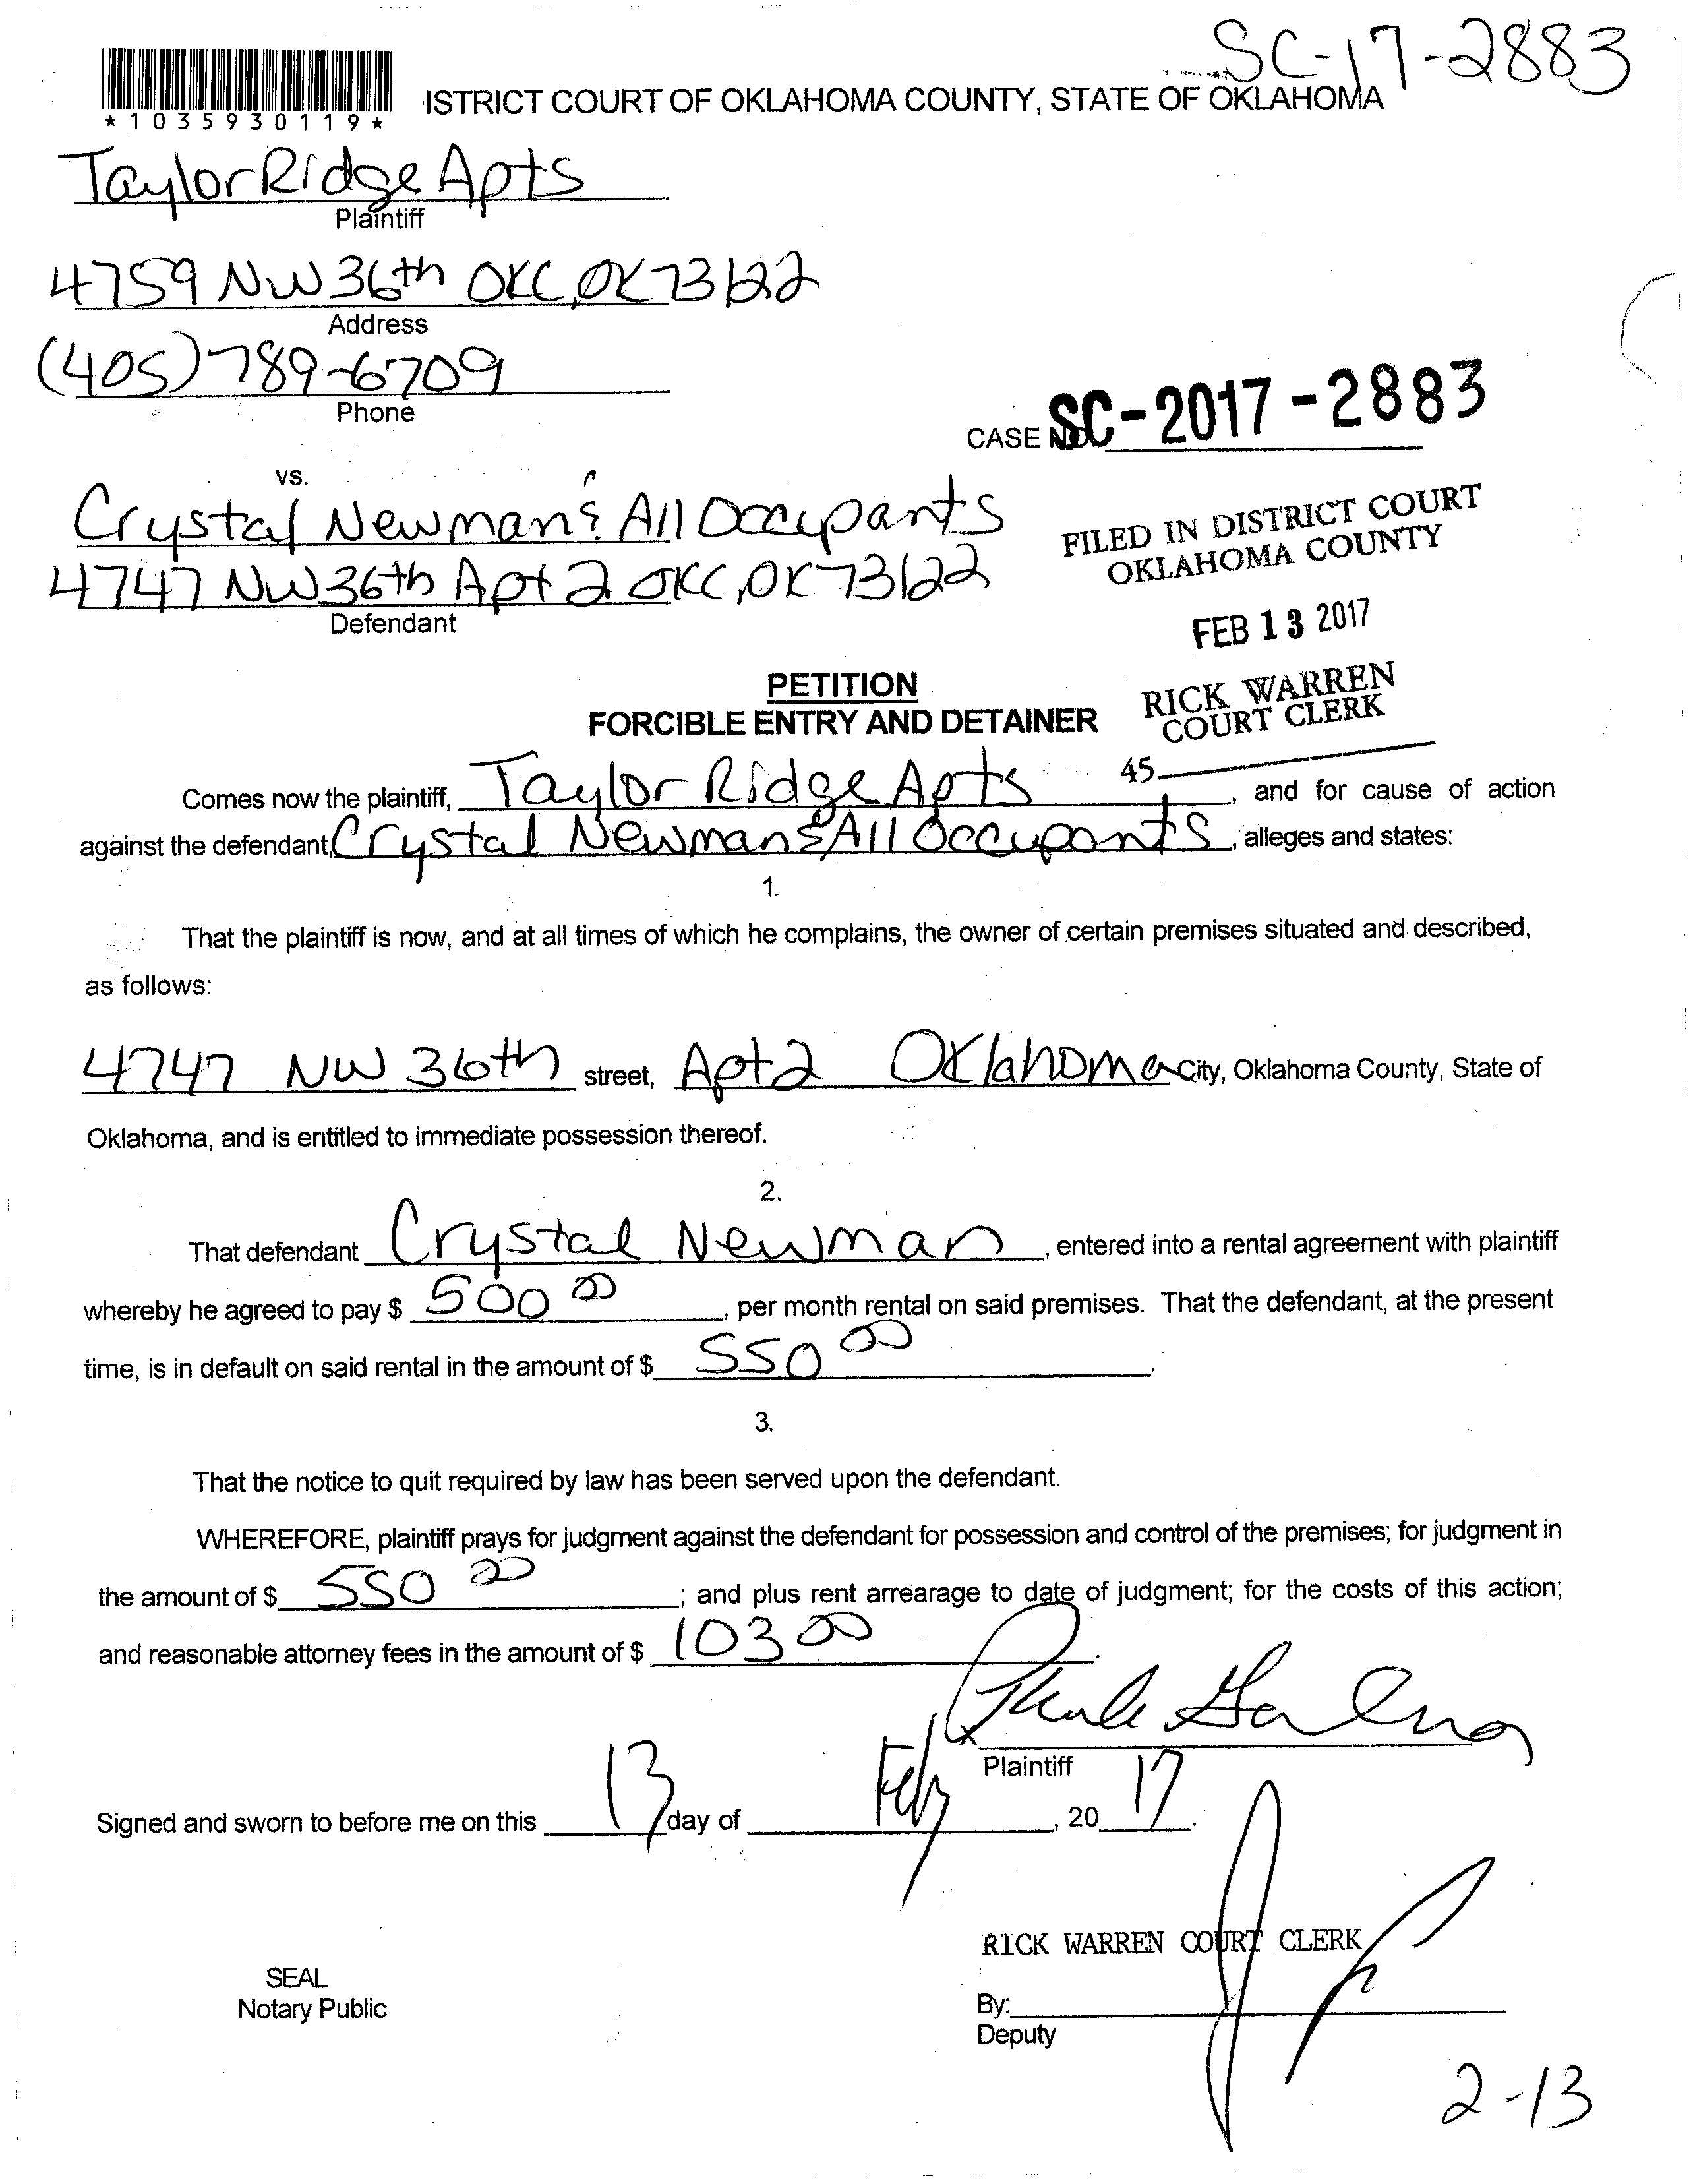 SC-17-2883
*1035930119*
ISTRICT COURT OF OKLAHOMA COUNTY, STATE OF OKLAHOMA
Taylor Ridge Apts
Plaintiff
4759 NW 36th OKC, OK 73122
Address
(405) 789-6709
Phone
CASE NO. SC-2017-2883
vs.
Crystal Newman & All Occupants
4747 NW 36th Apt 2 OKC, OK 73122
Defendant
FILED IN DISTRICT COURT
OKLAHOMA COUNTY
FEB 13 2017
RICK WARREN
COURT CLERK
45
PETITION
FORCIBLE ENTRY AND DETAINER
Comes now the plaintiff, Taylor Ridge Apts, and for cause of action
against the defendant, Crystal Newman & All Occupants, alleges and states:
1.
That the plaintiff is now, and at all times of which he complains, the owner of certain premises situated and described,
as follows:
4747 NW 36th street, Apt 2 Oklahoma City, Oklahoma County, State of
Oklahoma, and is entitled to immediate possession thereof.
2.
That defendant Crystal Newman, entered into a rental agreement with plaintiff
whereby he agreed to pay $ 500 00, per month rental on said premises. That the defendant, at the present
time, is in default on said rental in the amount of $ 550 00.
3.
That the notice to quit required by law has been served upon the defendant.
WHEREFORE, plaintiff prays for judgment against the defendant for possession and control of the premises; for judgment in
the amount of $ 550 00; and plus rent arrearage to date of judgment; for the costs of this action;
and reasonable attorney fees in the amount of $ 103 00.
Plaintiff
Signed and sworn to before me on this 13 day of Feb, 20 17.
RICK WARREN COURT CLERK
SEAL
Notary Public
By:
Deputy
2-13